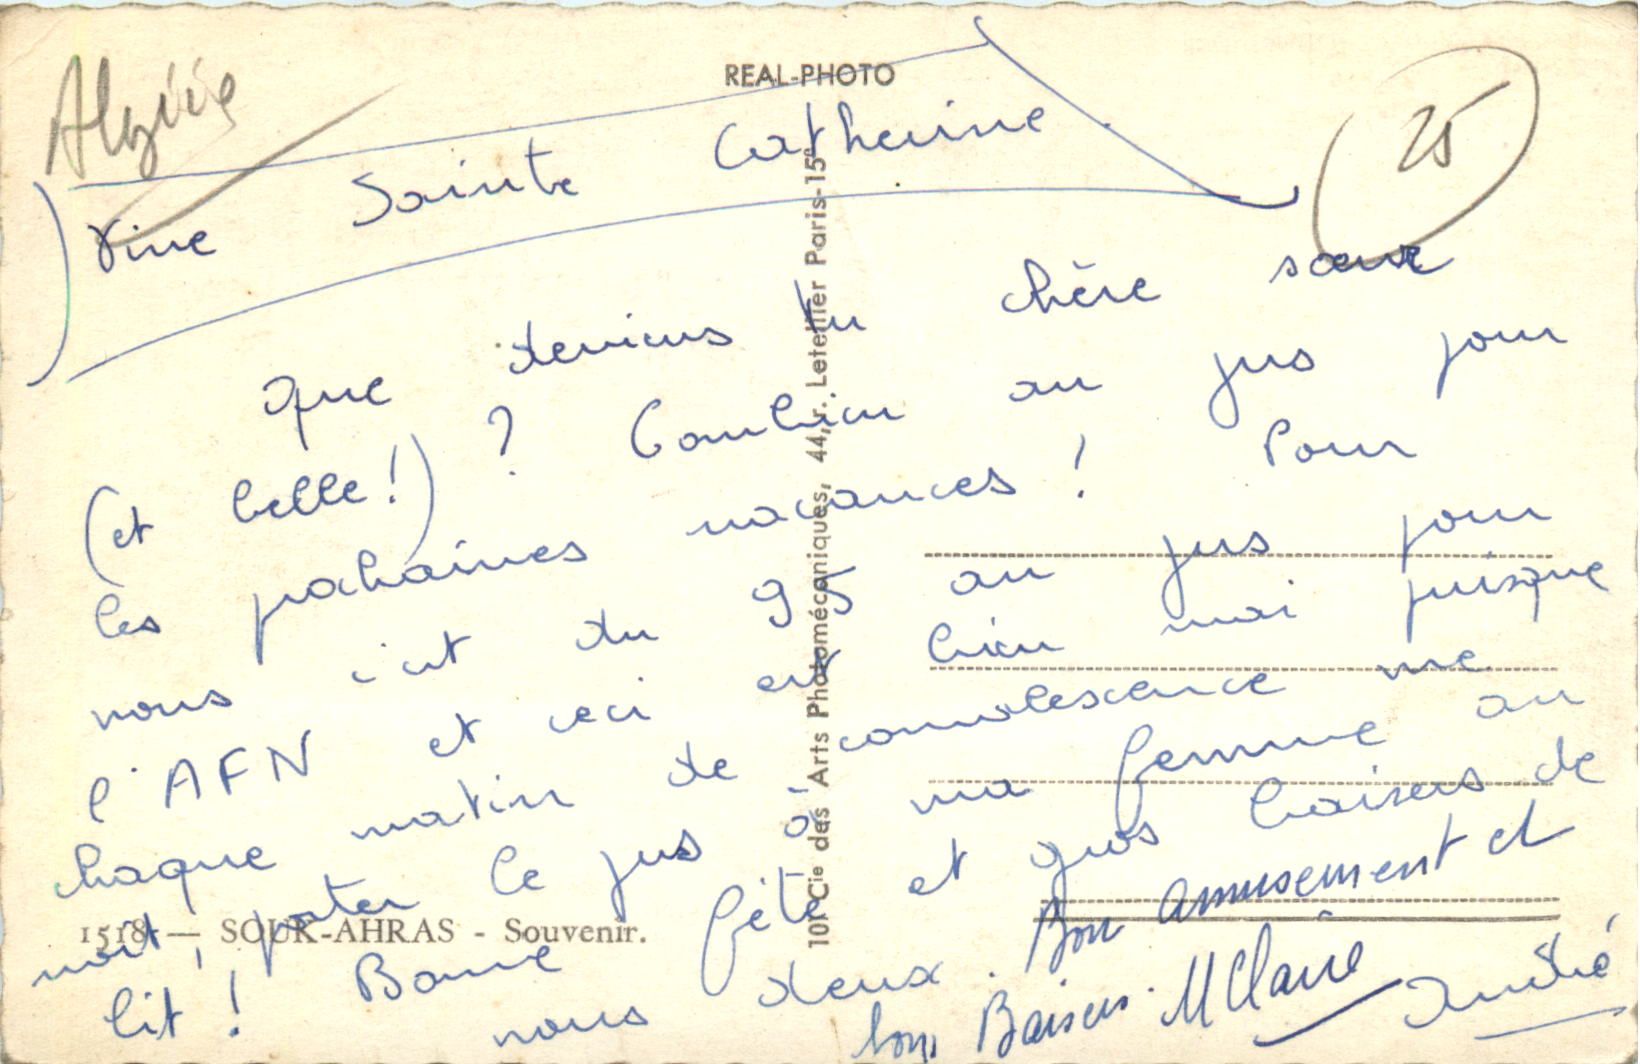 Algérie
REAL-PHOTO
25
Vive Sainte Catherine
Que deviens tu chère sœur
(et belle !) ? Combien au jus pour
les prochaines vacances ! Pour
nous c'est du 95 au jus pour
l'AFN et ceci est bien moi puisque
chaque matin de convalescence me
voit, porter le jus à ma femme au
lit ! Bonne fête et gros baisers de
nous deux. Bon amusement et
bons Baisers. MClaire
André
1518 — SOUK-AHRAS - Souvenir.
101 Cie des Arts Photomécaniques, 44, r. Letellier Paris-15e